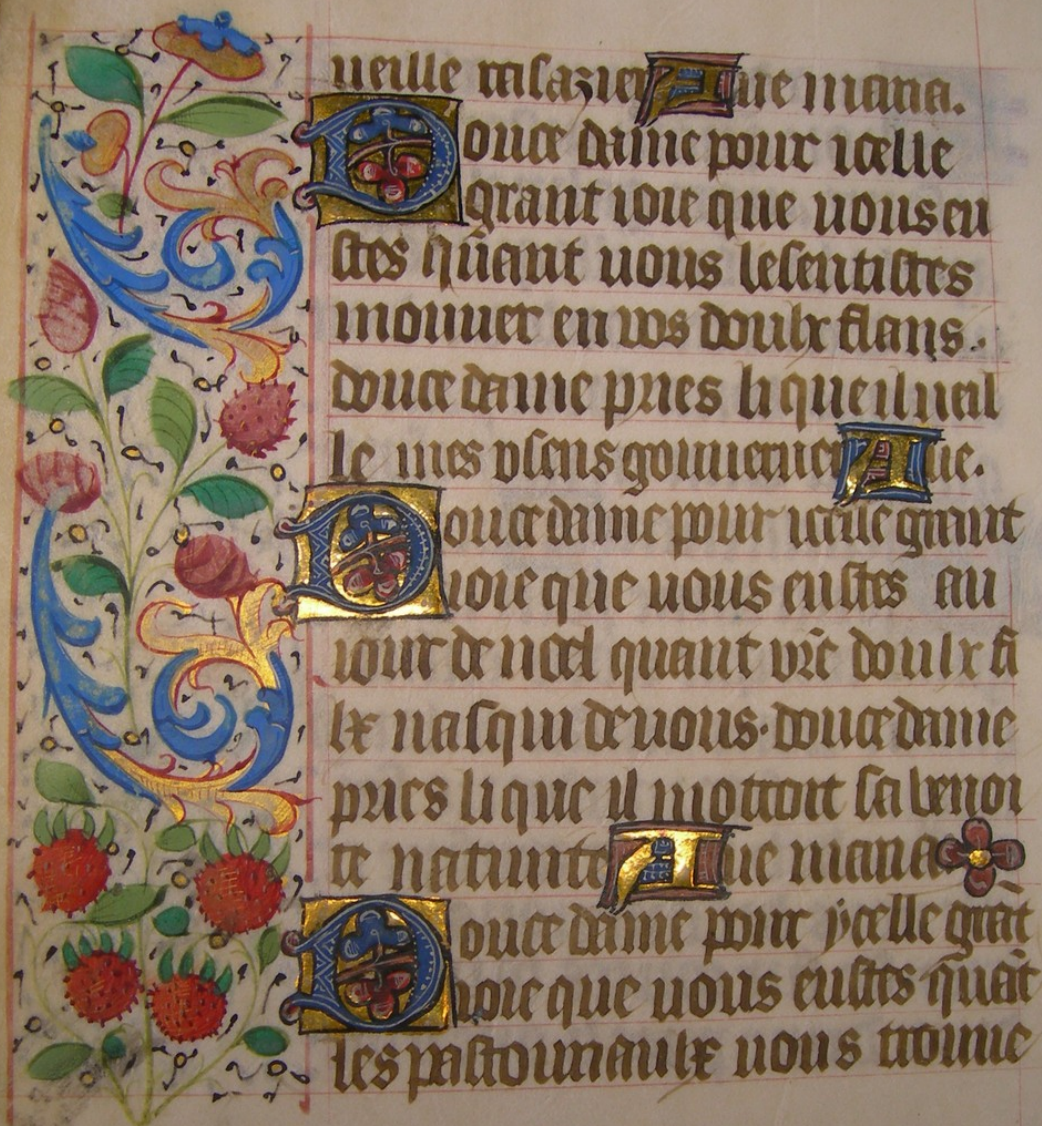 ueille rasazier Aue maria.
Douce dame pour icelle
grant ioie que vous eu
stes quant vous le sentistes
mouuer en vos doulx flans.
douce dame pries li que il ueil
le mes v sens gouuerner Aue.
Douce dame pour icelle grant
ioie que vous eustes au
iour de noel quant vrē doulx fi
lx nasqui de vous. douce dame
pries li que il mottroit sa benoi
te natiuite Aue maria
Douce dame pour ẏcelle grāt
ioie que vous eustes quāt
les pastouriaulx vous trouue